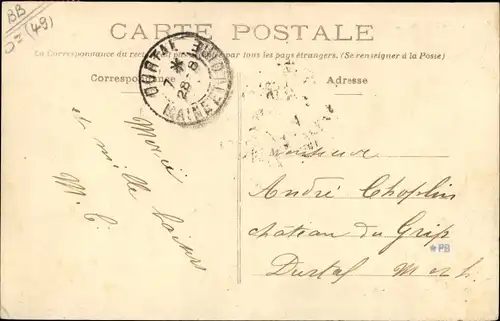 BB
(49)
CARTE POSTALE
La Correspondance du recto par tous les pays étrangers. (Se renseigner à la Poste)
Correspondance
Adresse
DURTAL
7 * 8
28
MAINE ET LOIRE
Merci
et mille baisers
M. C.
Monsieur
André Choplin
château du Grip
Durtal M et L.
*PB